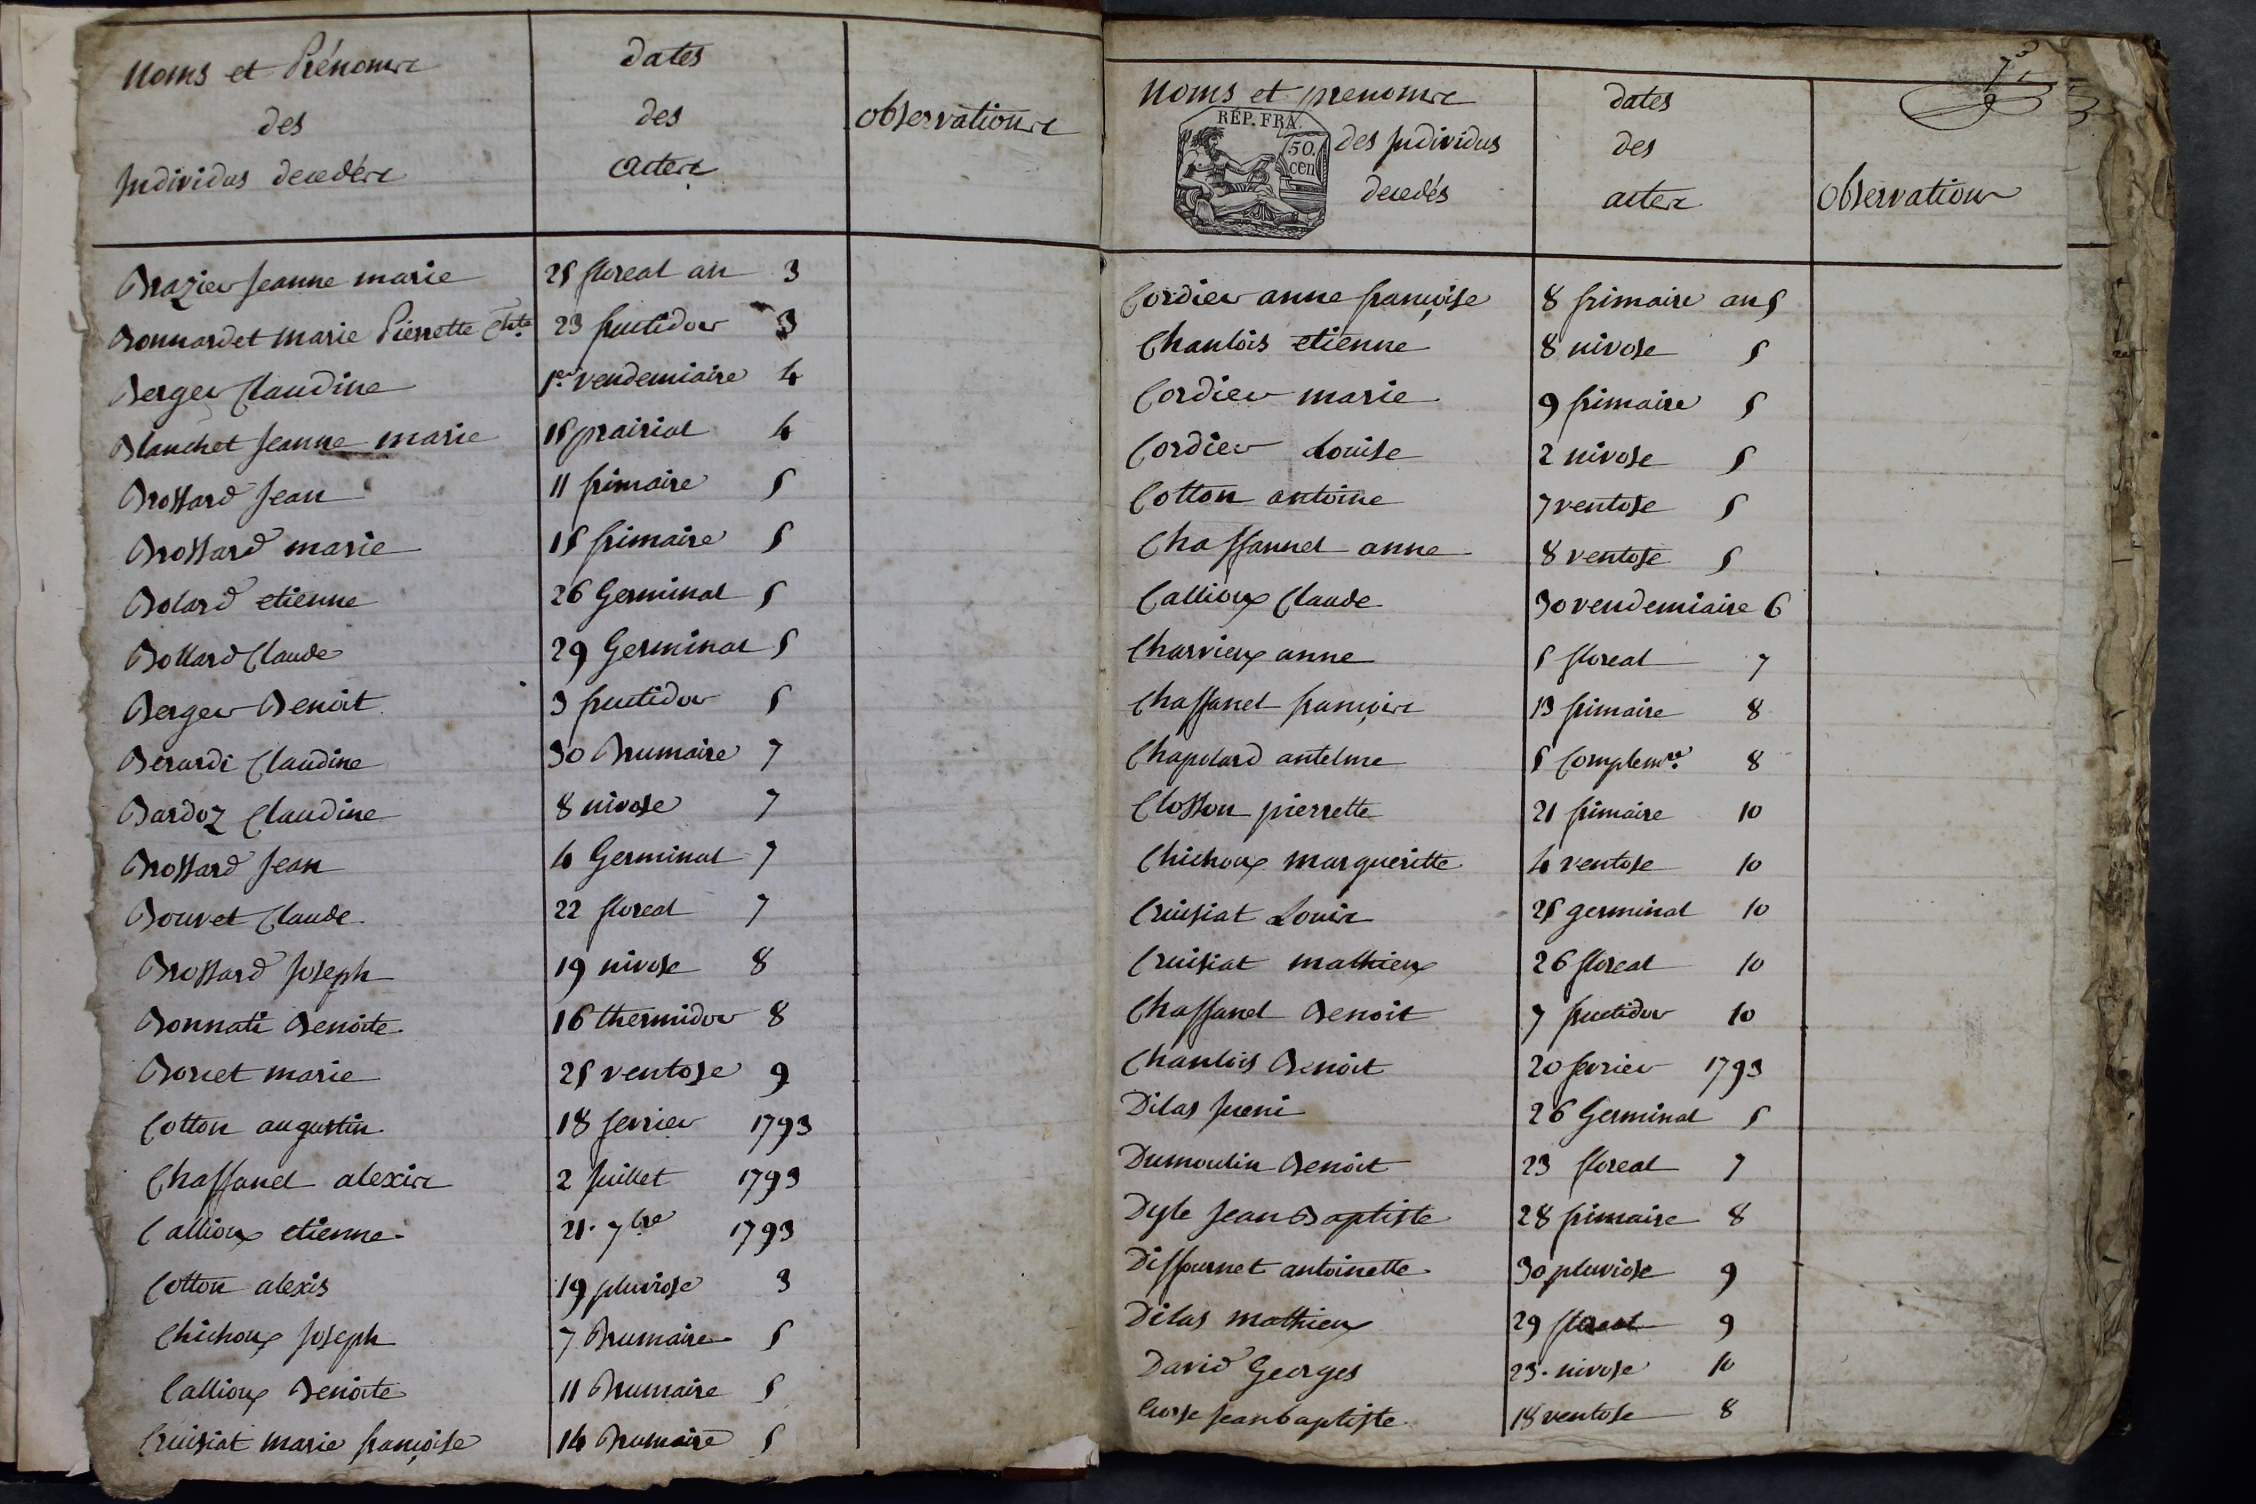 Noms et Prénoms
des
Individus decedés
dates
des
actes
observations
Brazier Jeanne marie 25 floreal an 3
Bonnardet marie Pierrette 23 fructidor 3
Berger Claudine 1er vendemiaire 4
Blanchet Jeanne marie 15 prairial 4
Brossard Jean 11 frimaire 5
Brossard marie 15 frimaire 5
Bolard etienne 26 Germinal 5
Bollard Claude 29 Germinal 5
Berger Benoit 3 fructidor 5
Berardi Claudine 30 Brumaire 7
Bardoz Claudine 8 nivose 7
Brossard Jean 4 Germinal 7
Bouvet Claude 22 floreal 7
Brossard Joseph 19 nivose 8
Bonnati Benoite 16 thermidor 8
Borcet marie 25 ventose 9
Cotton augustin 18 fevrier 1793
Chaffanel alexis 2 Juillet 1793
Callioux etienne 21. 7bre 1793
Cotton alexis 19 pluviose 3
Chichoux Joseph 7 Brumaire 5
Callioux Benoite 11 Brumaire 5
Cruisiat marie françoise 14 Brumaire 5
Noms et prenoms
des Individus
decedés
RÉP. FRA.
50.
cen
dates
des
actes
Observations
Cordier anne françoise 8 frimaire an 5
Chanlois etienne 8 nivose 5
Cordier marie 9 frimaire 5
Cordier Louise 2 nivose 5
Cotton antoine 7 ventose 5
Chaffannel anne 8 ventose 5
Callioux Claude 30 vendemiaire 6
Charvieux anne 5 floreal 7
Chaffanel françois 13 frimaire 8
Chapolard antelme 5 Complemre. 8
Closson pierrette 21 frimaire 10
Chichoux margueritte 4 ventose 10
Cruisiat Louis 25 germinal 10
Cruisiat mathieux 26 floreal 10
Chaffanel Benoit 7 fructidor 10
Chanlois Benoit 20 fevrier 1793
Dilas 26 Germinal 5
Dumoulin Benoit 23 floreal 7
Dyle Jean Baptiste 28 frimaire 8
Diffournet antoinette 30 pluviose 9
Dilas mathieux 29 floreal 9
David Georges 23. nivose 10
Jean baptiste 18 ventose 8